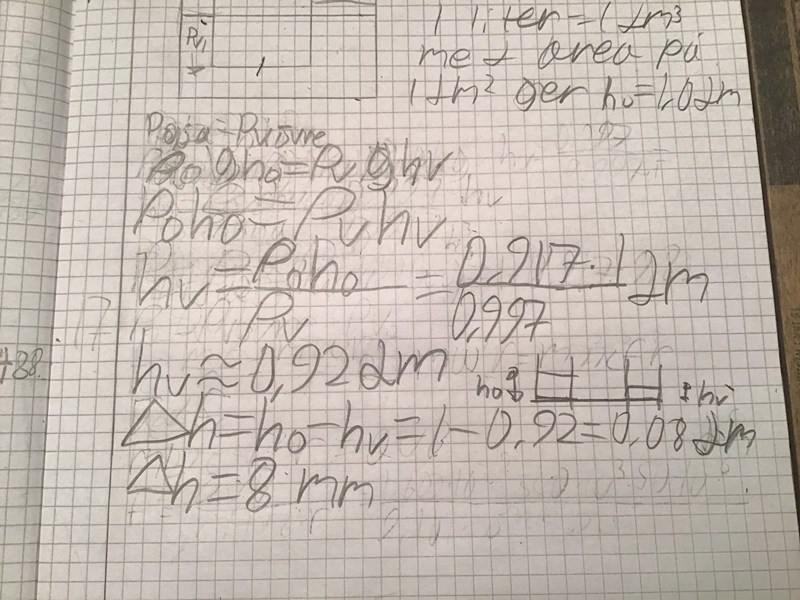 Pv,
1
1 liter = 1 dm³
med area på
1 dm² ger h₀ = 1,0 dm
Polja = Pv övre
ρ₀gh₀ = ρᵥghᵥ
ρ₀h₀ = ρᵥhᵥ
hᵥ = ρ₀h₀/ρᵥ = 0,917·1/0,997 dm
hᵥ ≈ 0,92 dm
h₀ hᵥ
Δh = h₀ - hᵥ = 1 - 0,92 = 0,08 dm
Δh = 8 mm